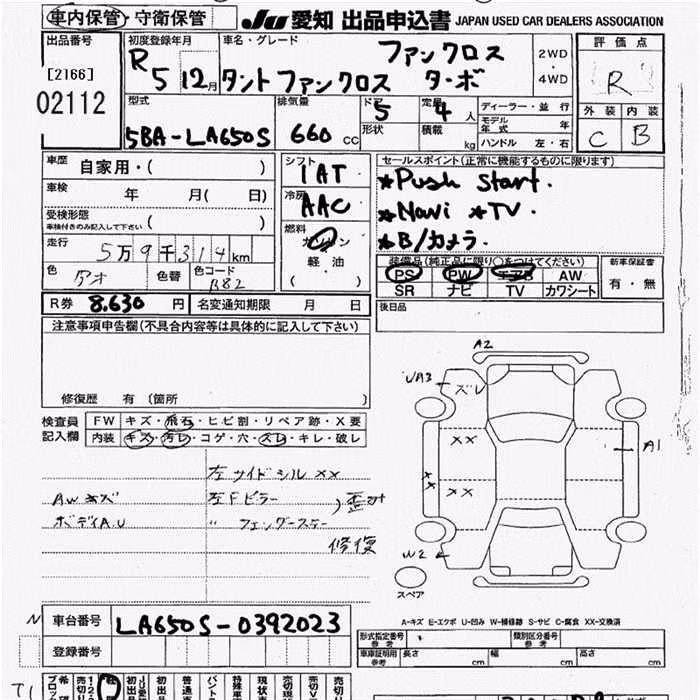 車内保管・守衛保管
JU 愛知 出品申込書 JAPAN USED CAR DEALERS ASSOCIATION
出品番号
[2166]
02112
初度登録年月
R 5 12月
車名・グレード
ファンクロス
タント ファンクロス ターボ
2WD
・
4WD
評価点
R
外装 内装
C B
型式
5BA-LA650S
排気量
660 cc
ドア 5
形状
定員 4 人
積載 kg
ディーラー・並行
モデル年式 年
ハンドル 左・右
車歴 自家用・( )
車検 年 月( 日)
受検形態
車検付きのみ記入して下さい ( )
走行 5万9千314km
色 アオ 色替 色コード B82
シフト
IAT
冷房
AAC
燃料
ガソリン
軽・油
( )
セールスポイント(正常に機能するものに限ります)
★Push Start.
★Navi ★TV.
★B/カメラ.
装備品(純正品に限り○をつけてください)
PS PW エアB AW
SR ナビ TV カワシート
新車保証書
有・無
R券 8.630 円 名変通知期限 月 日
後日品
注意事項申告欄(不具合内容等は具体的に記入して下さい)
修復歴 有〔箇所 〕
検査員
記入欄
FW キズ・飛石・ヒビ割・リペア跡・X要
内装 キズ・汚レ・コゲ・穴・ズレ・キレ・破レ
左サイドシル ××
AWキズ 左Fピラー
ボディA.U 〃
修復
A2
UA3
ズレ
××
A1
××
××
W2
スペア
A-キズ E-エクボ U-凹み W-補修跡 S-サビ C-腐食 XX-交換済
N
車台番号 LA650S-0392023
登録番号
形式指定番号
参考
類別区分番号
参考
車庫証明用
参考
長さ cm 幅 cm 高さ cm
T1